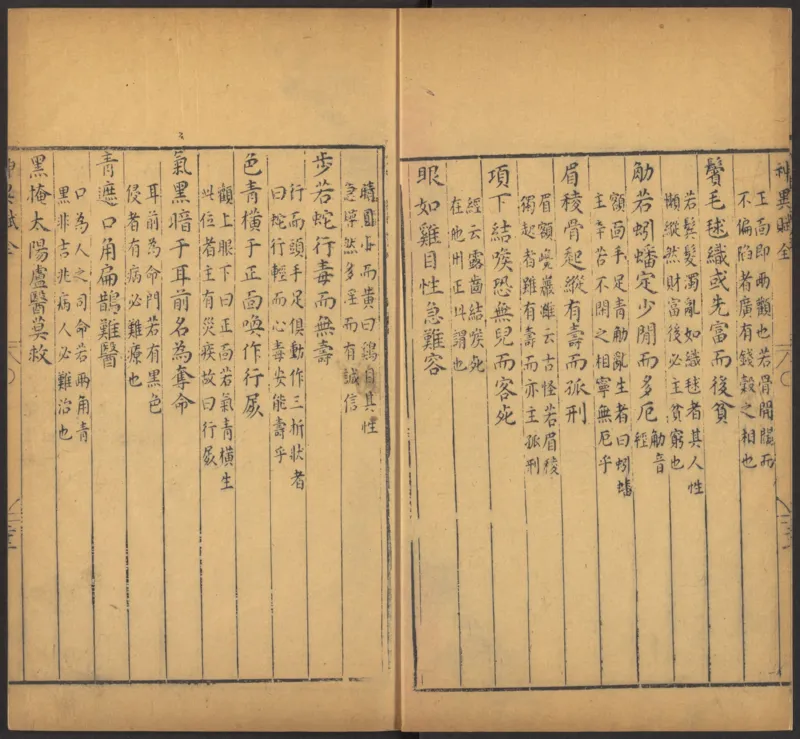 神異賦全
正面即兩顴也若骨開闊而
不偏陷者廣有錢穀之相也
鬢毛毬織或先富而後貧
若鬢髮濁亂如織毬者其人性
懶縱然財富後必主貧窮也
觔若蚓蟠定少閒而多厄
觔音
經
額面手足青觔亂生者曰蚓蟠
主辛苦不閑之相寧無厄乎
眉稜骨起縱有壽而孤刑
眉額覺叢雖云古怪若眉稜
獨起者雖有壽而亦主孤刑
項下結喉恐無兒而客死
經云露齒結喉死
在他州正此謂也
眼如雞目性急難容
睛圓小而黃曰鷄目其性
急悻然多淫而有誠信
步若蛇行毒而無壽
行而頭手足俱動作三折狀者
曰蛇行輕而心毒安能壽乎
色青橫于正面喚作行屍
顴上眼下曰正面若氣青橫生
此位者主有災疾故曰行屍
氣黑暗于耳前名為奪命
耳前為命門若有黑色
侵者有病必難療也
青遮口角扁鵲難醫
口為人之司命若兩角青
黑非吉兆病人必難治也
黑掩太陽盧醫莫救
神異賦全